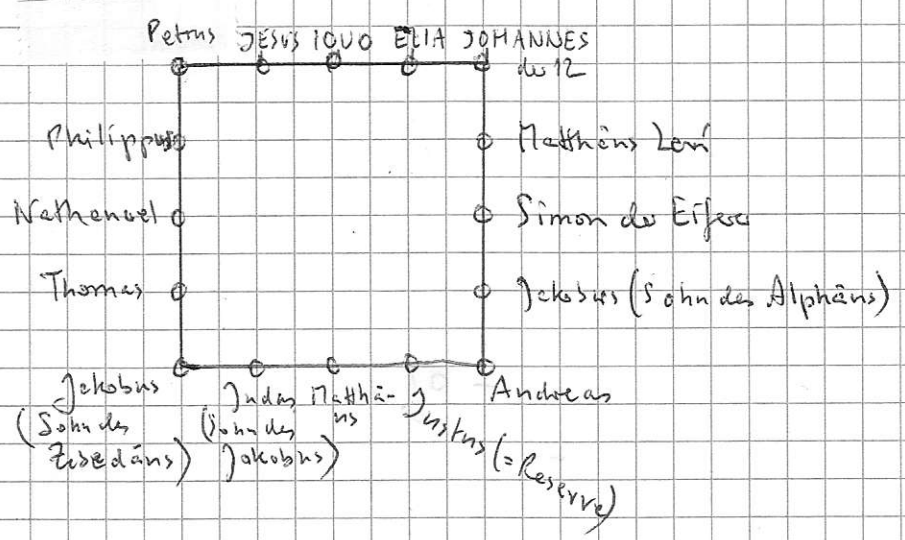 Petrus JESUS IOUO ELIA JOHANNES
der 12
Philippus
Matthäus Levi
Nathanael
Simon der Eiferer
Thomas
Jakobus (Sohn des Alphäus)
Jakobus
(Sohn des
Zebedäus)
Judas
(Sohn des
Jakobus)
Matthä-
us
Justus (= Reserve)
Andreas